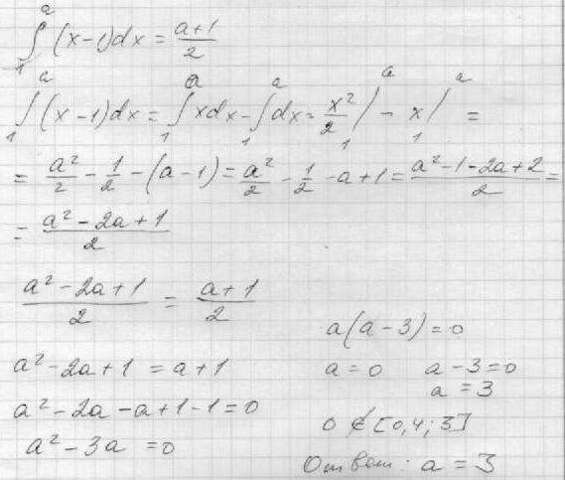 ∫₁ᵃ (x-1)dx = (a+1)/2
∫₁ᵃ (x-1)dx = ∫₁ᵃ xdx - ∫₁ᵃ dx = x²/2 /₁ᵃ - x /₁ᵃ =
= a²/2 - 1/2 - (a-1) = a²/2 - 1/2 - a+1 = (a²-1-2a+2)/2 =
= (a²-2a+1)/2
(a²-2a+1)/2 = (a+1)/2
a²-2a+1 = a+1
a²-2a-a+1-1=0
a²-3a =0
a(a-3)=0
a=0 a-3=0
a=3
0 ∉ [0,4; 3]
Ответ: a=3